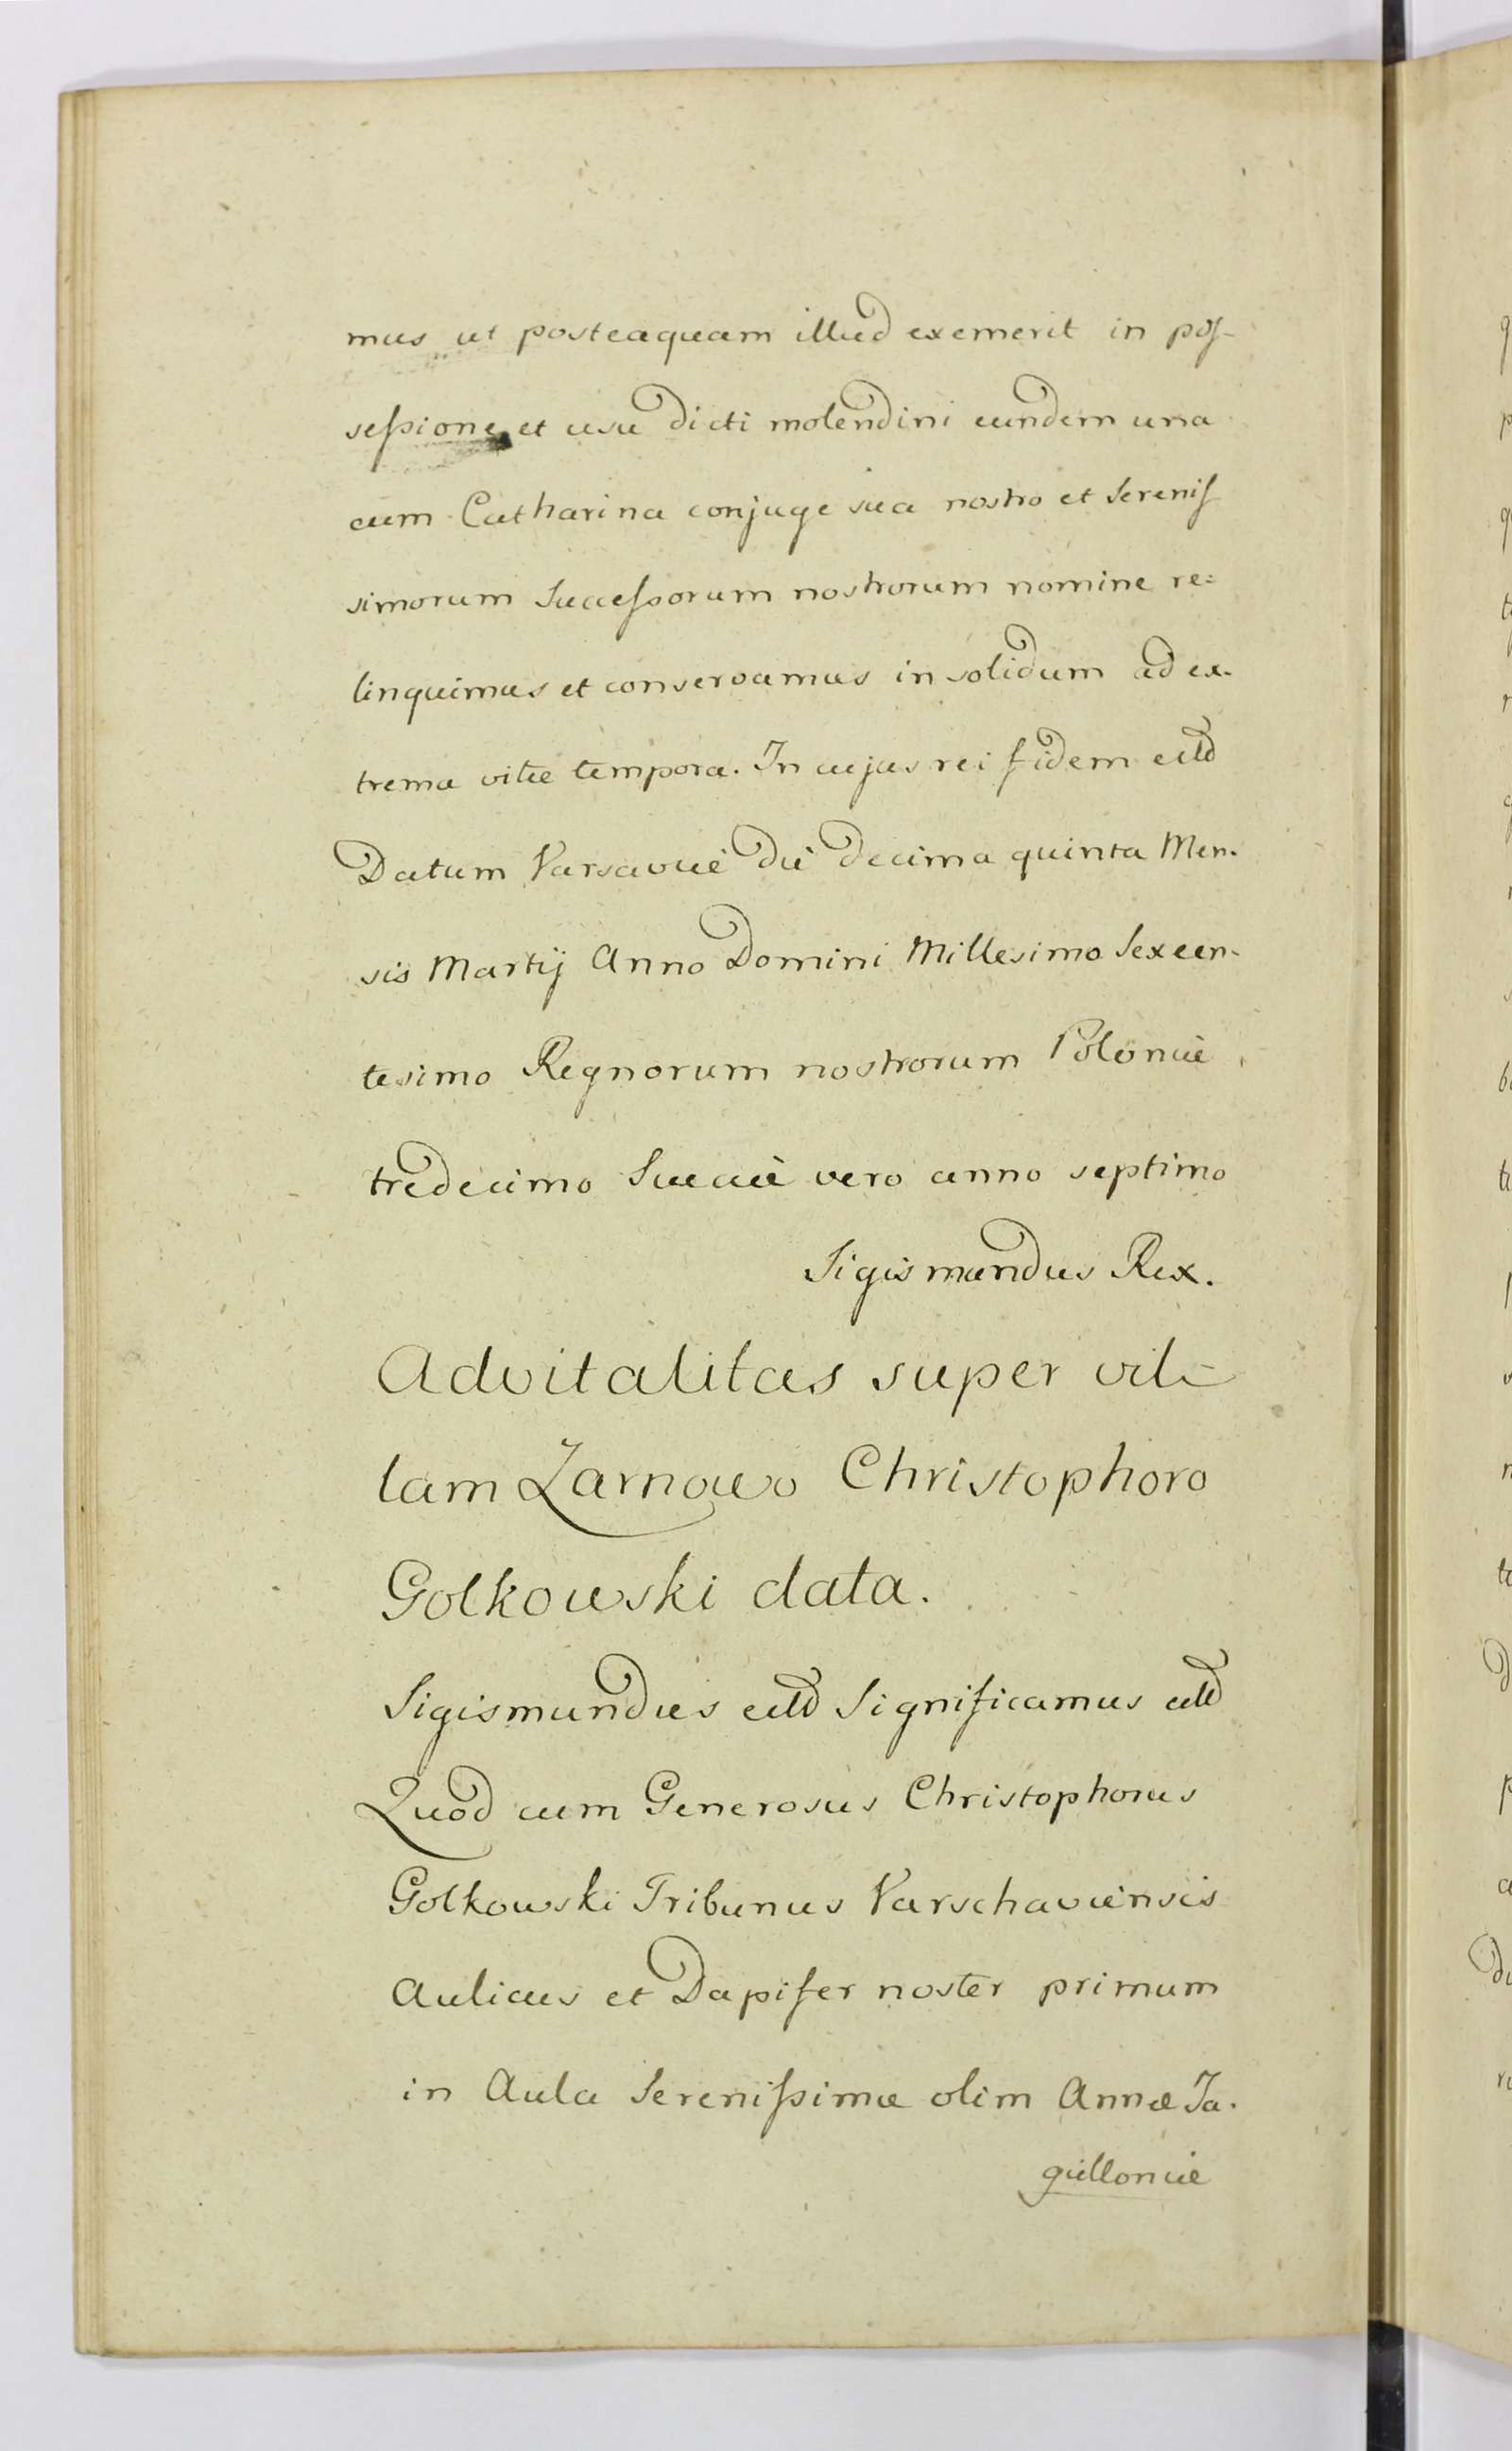 mus ut posteaquam illud exemerit in pos-
sessione et usu dicti molendini eundem una
cum Catharina conjuge sua nostro et Serenis
simorum Successorum nostrorum nomine re=
linquimus et conservamus in solidum ad ex-
trema vitæ tempora. In cujus rei fidem ettd
Datum Varsaviæ die decima quinta Men-
sis Martij Anno Domini Millesimo Sexcen-
tesimo Regnorum nostrorum Poloniæ
tredecimo Sueciæ vero anno septimo
Sigismundus Rex.
Advitalitas super vil-
lam Żarnowo Christophoro
Golkowski data.
Sigismundus ettd Significamus ettd
Quod cum Generosus Christophorus
Golkowski Tribunus Varschaviensis
Aulicus et Dapifer noster primum
in Aula Serenissimæ olim Annæ Ja-
gielloniæ